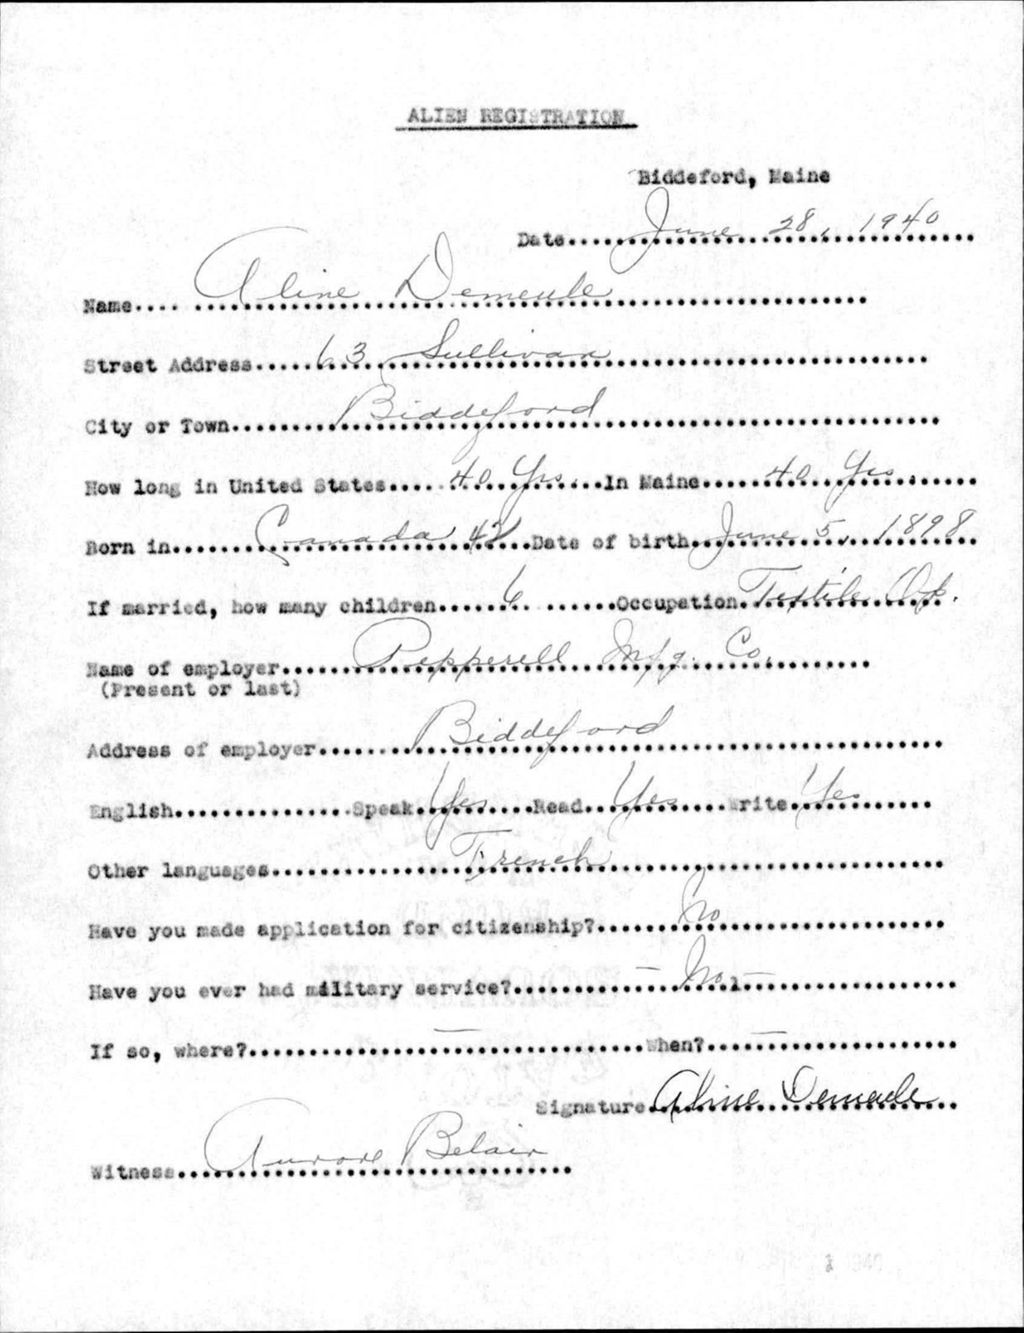 ALIEN REGISTRATION
Biddeford, Maine
Date June 28, 1940
Name Aline Demeule
Street Address 63 Sullivan
City or Town Biddeford
How long in United States 40 Yrs In Maine 40 Yrs
Born in Canada 42 Date of birth June 5, 1898
If married, how many children 6 Occupation Textile Op.
Name of employer Pepperell Mfg. Co.
(Present or last)
Address of employer Biddeford
English Speak Yes Read Yes Write Yes
Other languages French
Have you made application for citizenship? No
Have you ever had military service? - No -
If so, where? - When? -
Signature Aline Demeule
Witness Aurore Belair